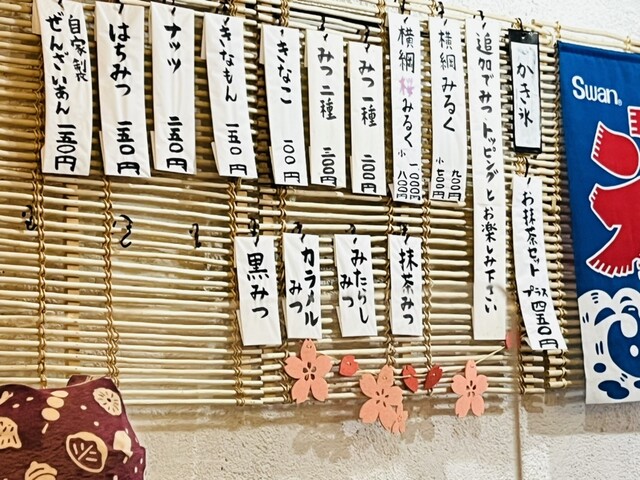 かき氷
追加でみつトッピングとお楽しみ下さい
横綱みるく
九〇〇円
小 七〇〇円
横綱桜みるく
一〇〇〇円
小 八〇〇円
みつ一種
二〇〇円
みつ二種
三〇〇円
きなこ
一〇〇円
きなもん
一五〇円
ナッツ
二五〇円
はちみつ
一五〇円
自家製
ぜんざいあん
一五〇円
お抹茶セット
プラス四五〇円
抹茶みつ
みたらし
みつ
カラメル
みつ
黒みつ
Swan®